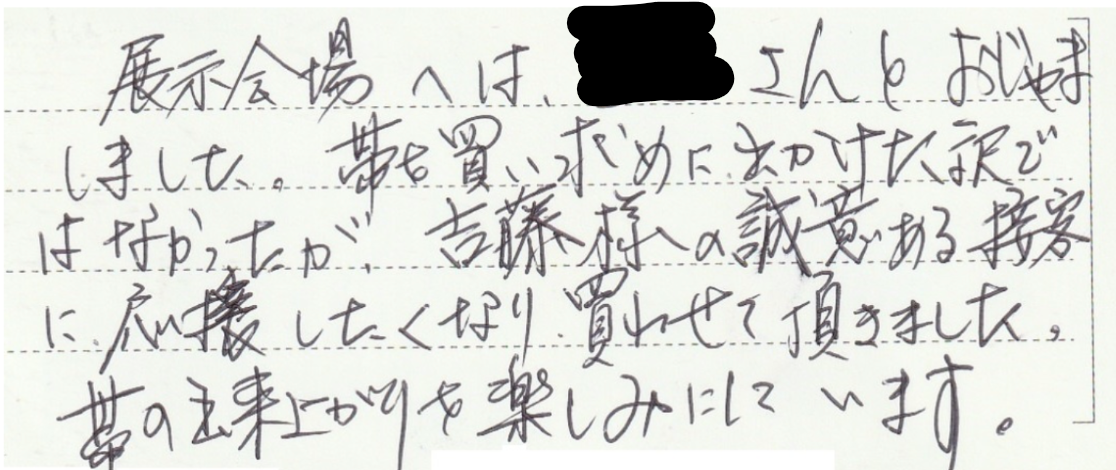 展示会場へは、さんとおじゃま
しました。帯を買い求めに出かけた訳で
はなかったが、吉藤様の誠意ある接客
に応援したくなり、買わせて頂きました。
帯の出来上がりを楽しみにしています。